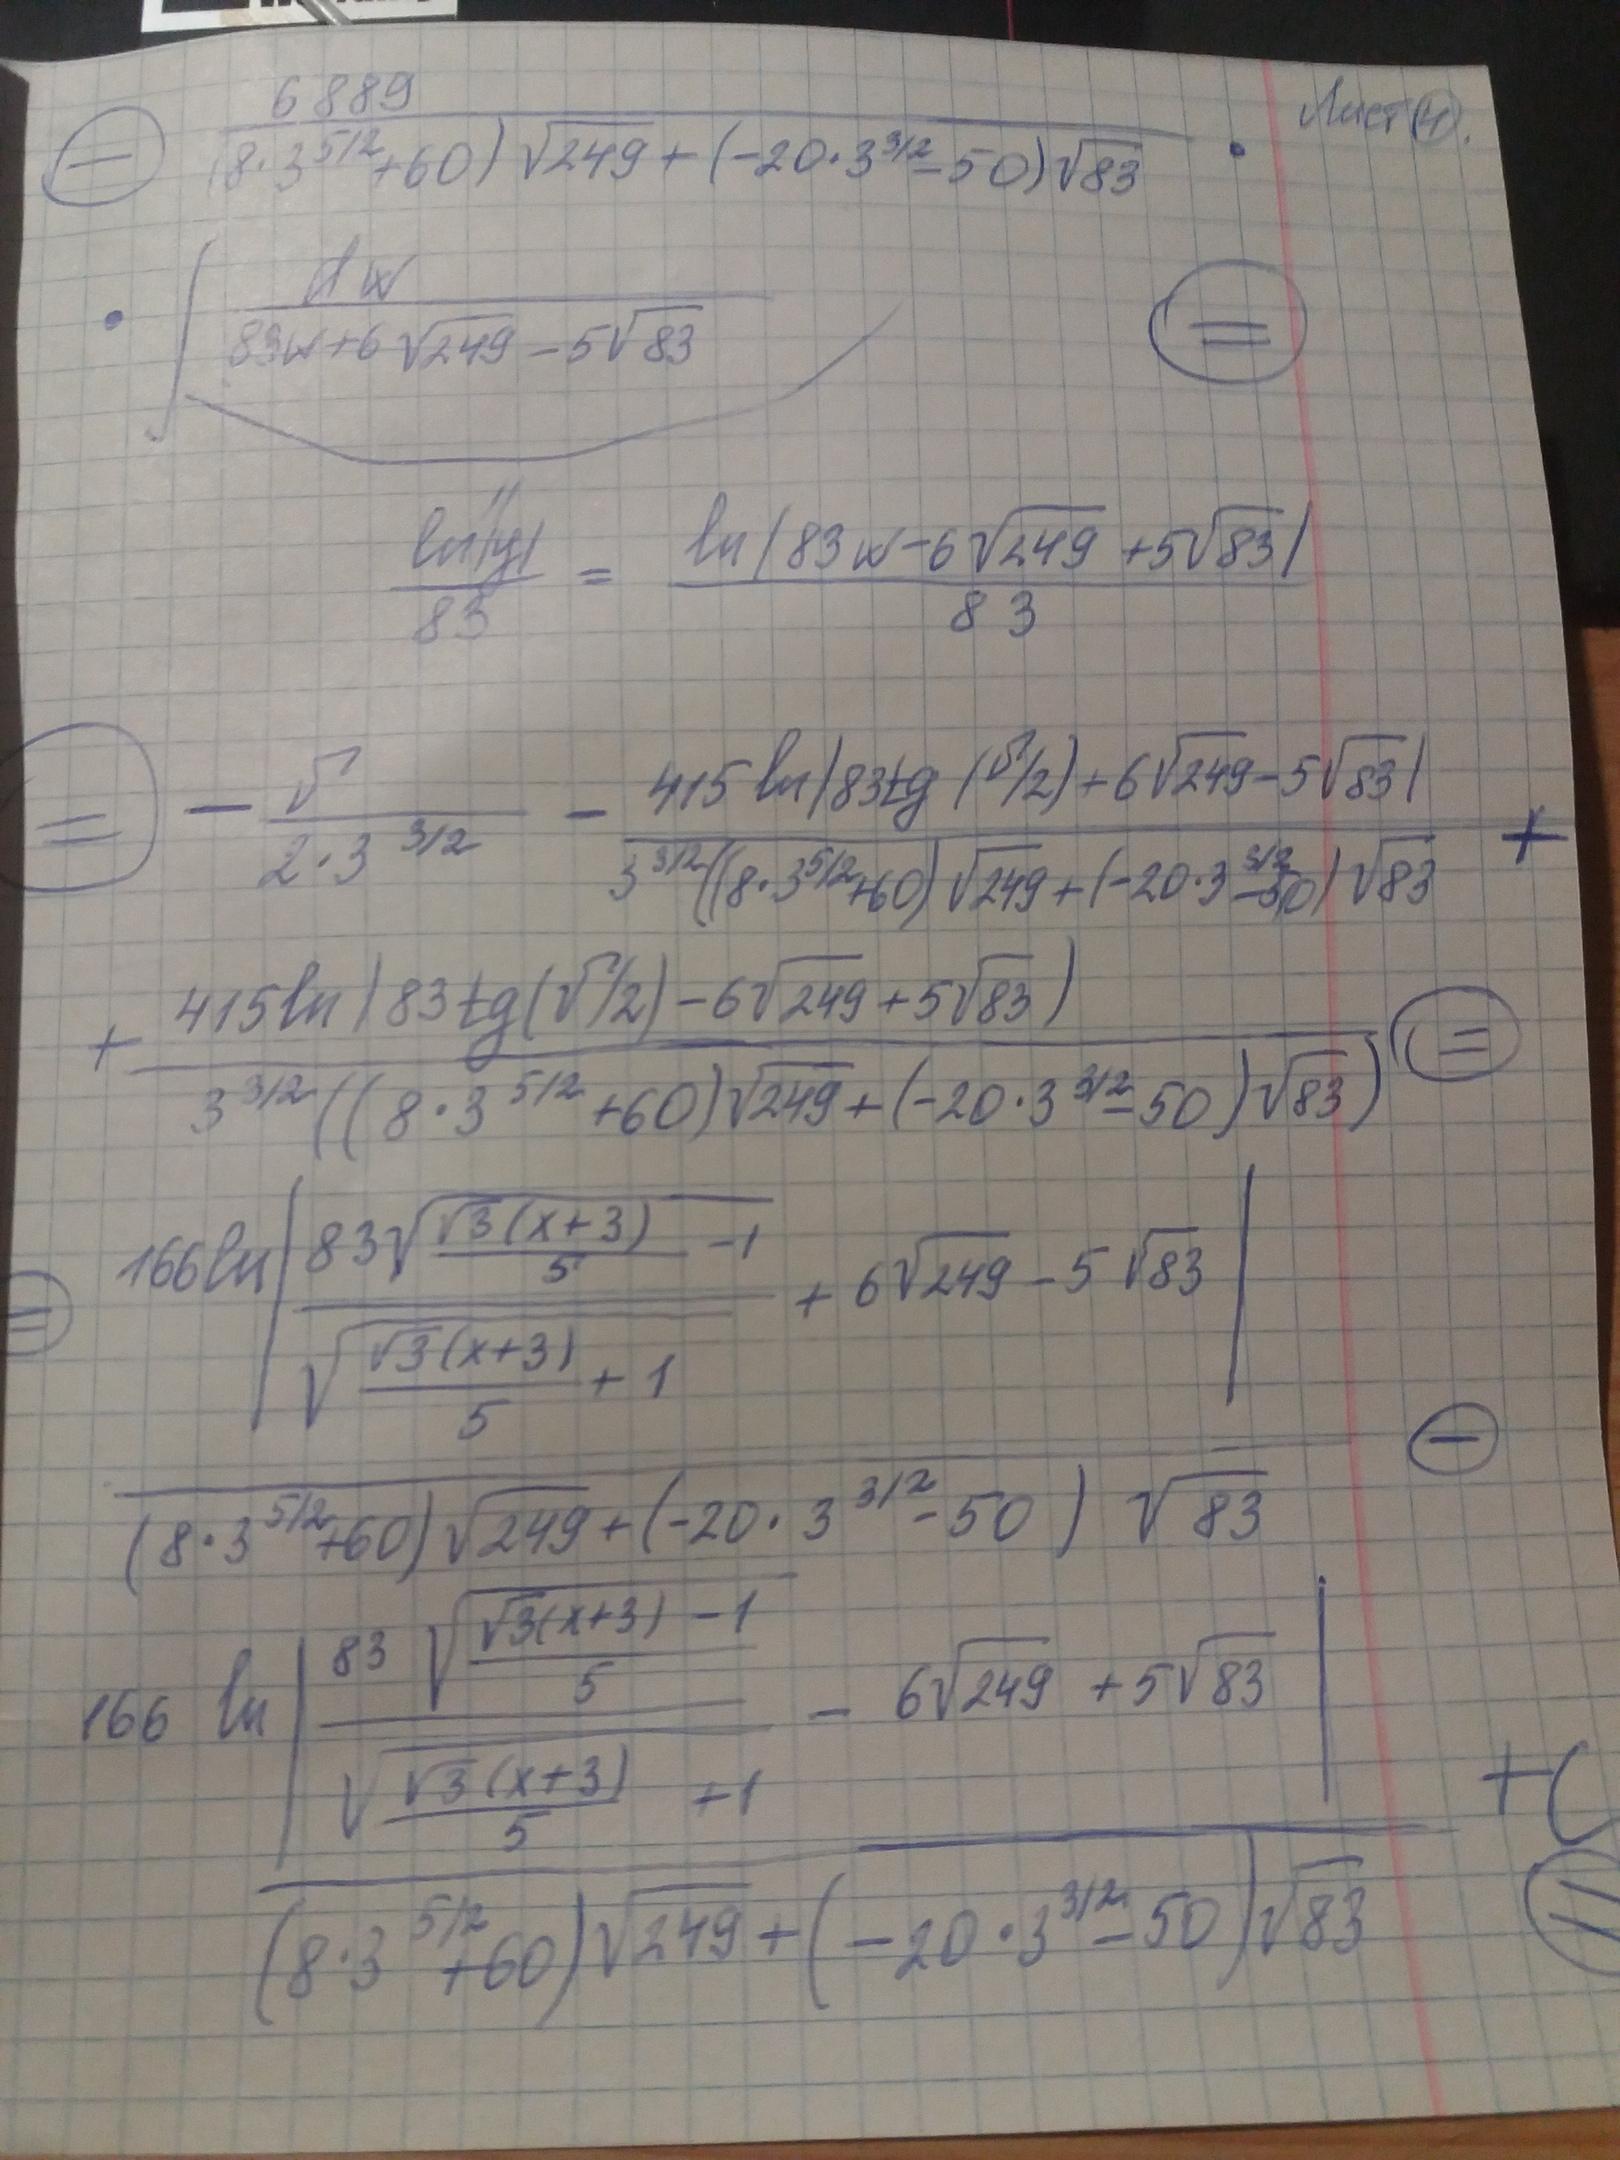 Лист (4).
⊖ 6889 / ((8·3^{5/2}+60)√249 + (-20·3^{3/2}-50)√83) ·
· ∫ dw / (83w+6√249 - 5√83) ⊜
ln|y| / 83 = ln|83w-6√249 +5√83| / 83
⊜ - v / (2·3^{3/2}) - 415 ln|83tg(v/2)+6√249-5√83| / (3^{3/2}((8·3^{5/2}+60)√249+(-20·3^{3/2}-50)√83) +
+ 415ln|83tg(v/2)-6√249+5√83) / (3^{3/2}((8·3^{5/2}+60)√249+(-20·3^{3/2}-50)√83) ⊜
⊜ 166ln| 83√(√3(x+3)/5 -1) / √(√3(x+3)/5 + 1) + 6√249 - 5√83 | / ((8·3^{5/2}+60)√249+(-20·3^{3/2}-50)√83) ⊖
166 ln| 83√(√3(x+3)/5 -1) / √(√3(x+3)/5 +1) - 6√249 +5√83 | / ((8·3^{5/2}+60)√249+(-20·3^{3/2}-50)√83) +C ⊜